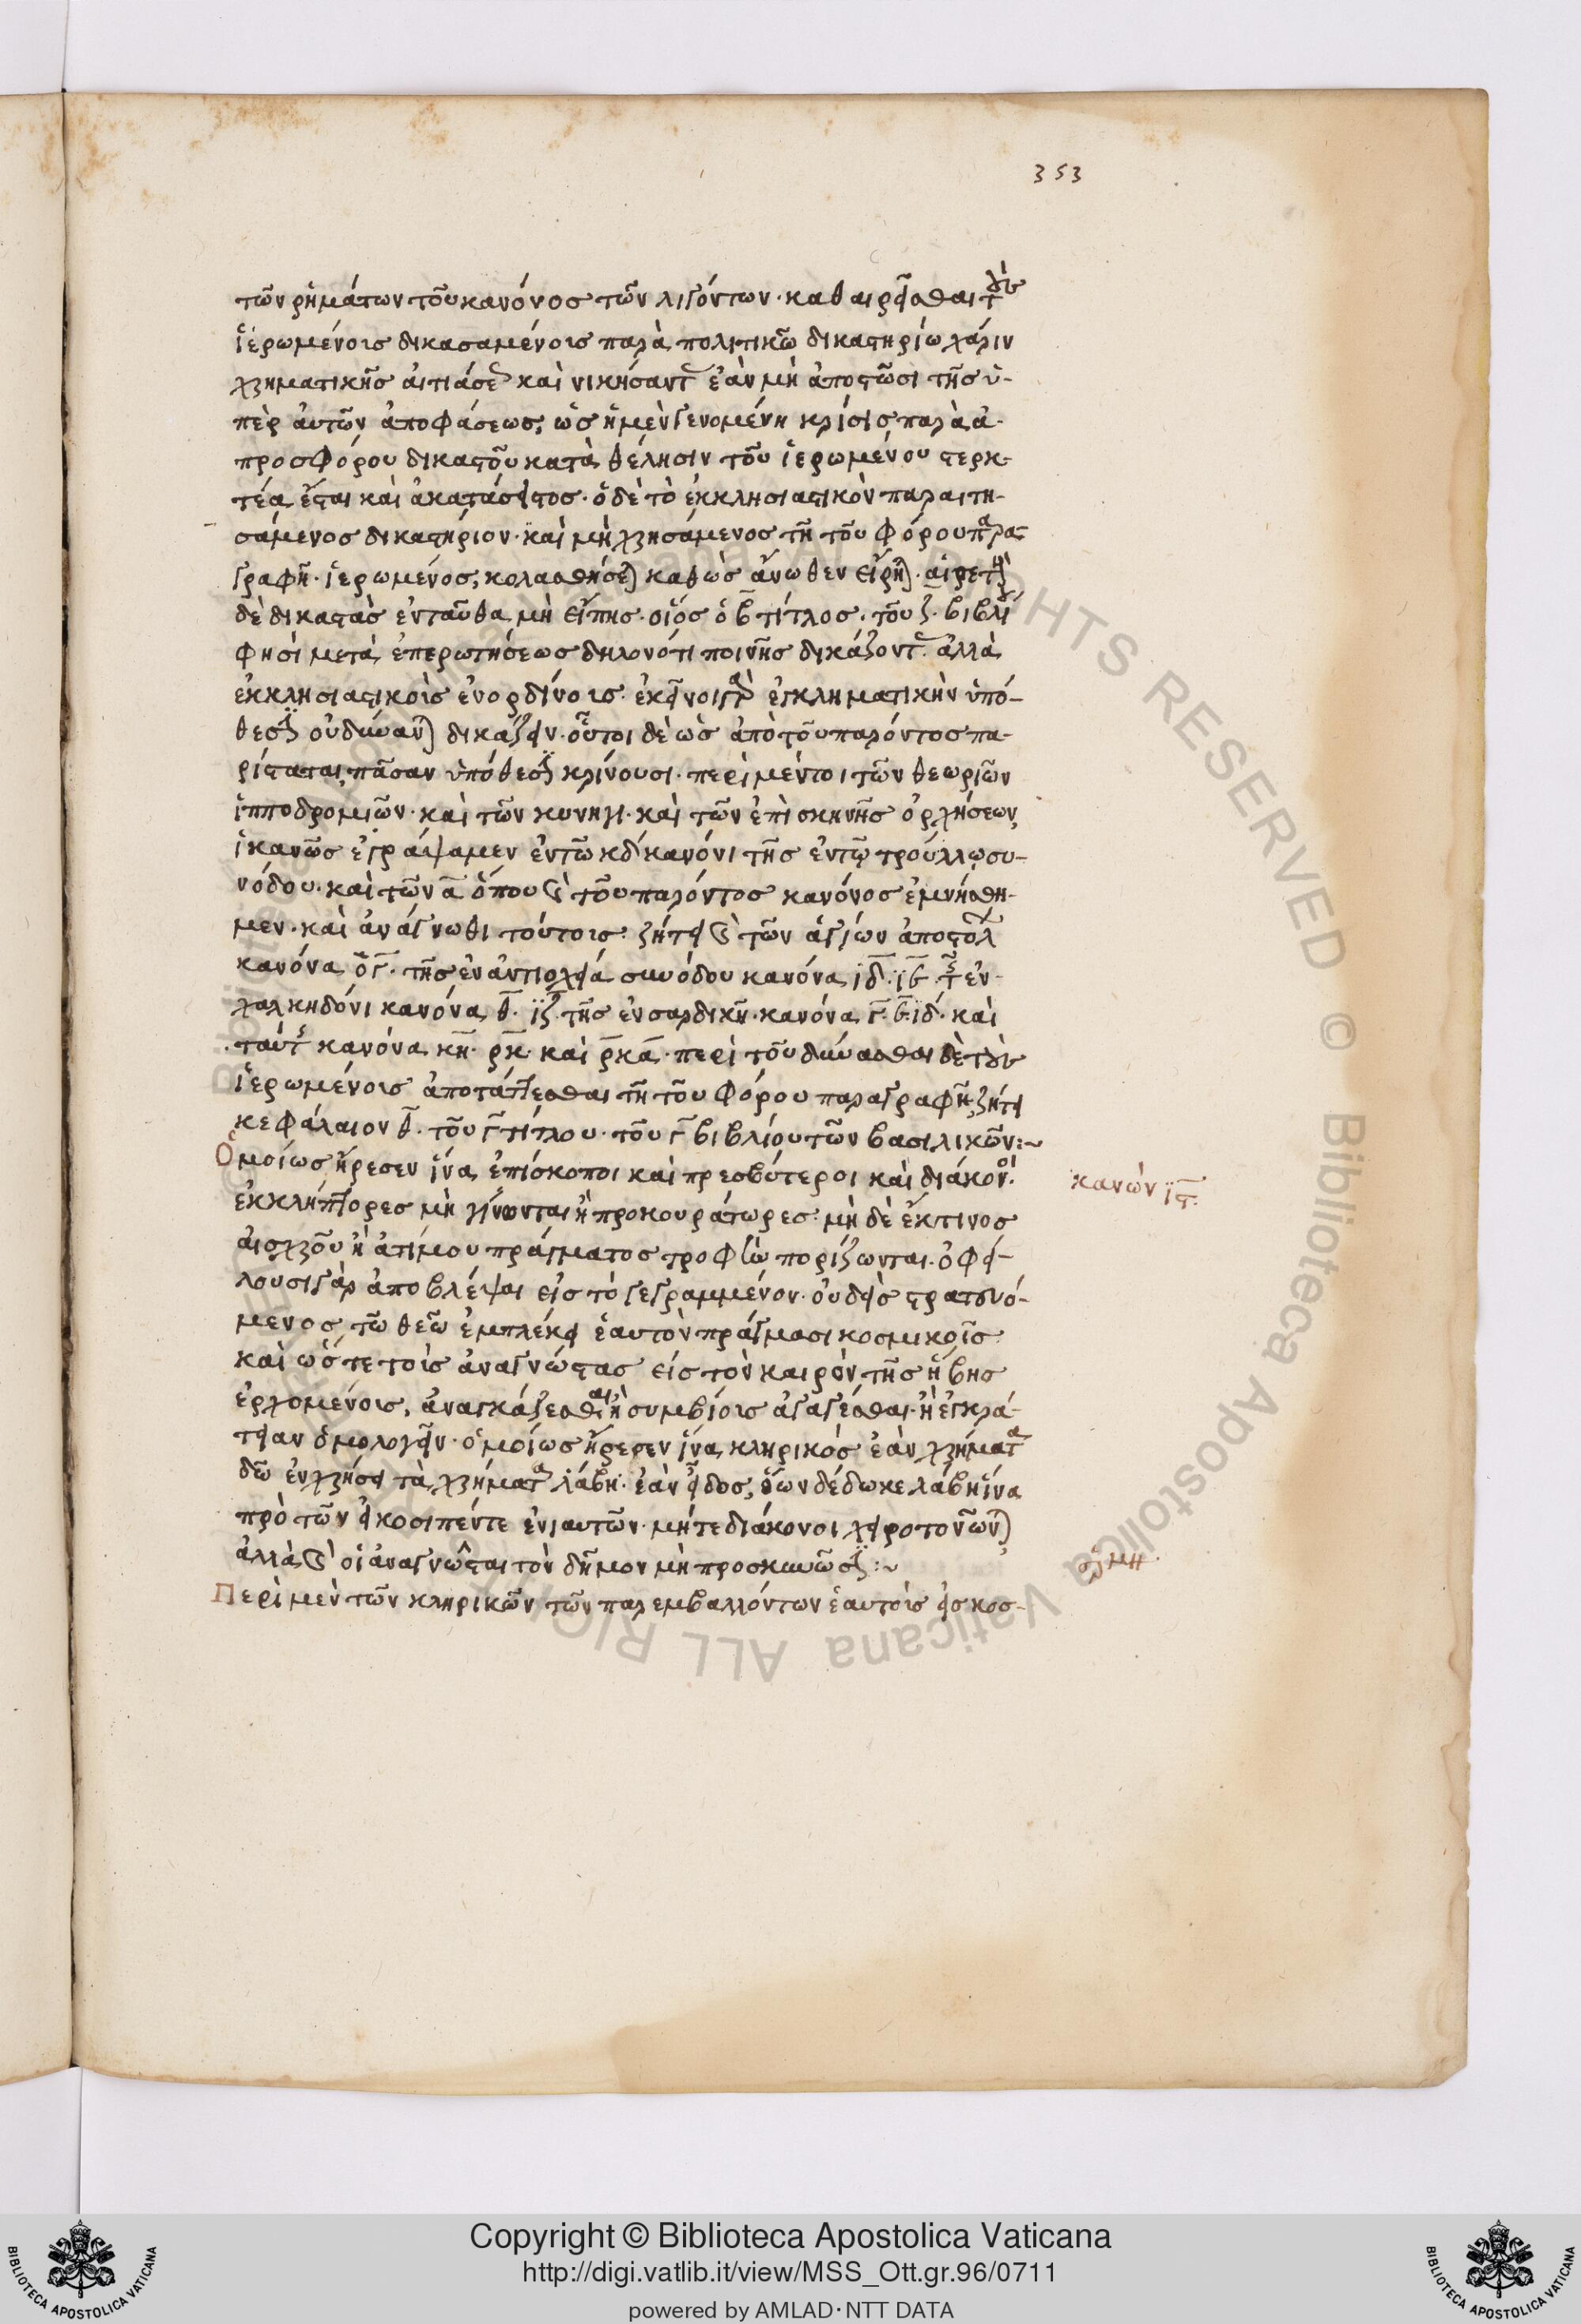 353
τῶν ῥημάτων τοῦ κανόνος τῶν λεγόντων· καθαιρεῖσθαι τοὺς
ἱερωμένους δικασαμένους παρὰ πολιτικῶ δικαστηρίω χάριν
χρηματικῆς αἰτιάσεως καὶ νικήσαντας ἐὰν μὴ ἀποστῶσι τῆς ὑ-
πὲρ αὐτῶν ἀποφάσεως, ὡς ἡ μὲν γενομένη κρίσις παρὰ ἀ-
προσφόρου δικαστοῦ κατὰ θέλησιν τοῦ ἱερωμένου στερκ-
τέα ἔσται καὶ ἀκατάσειστος· ὁ δὲ τὸ ἐκκλησιαστικὸν παραιτη-
σάμενος δικαστήριον· καὶ μὴ χρησάμενος τῆ τοῦ φόρου παρα-
γραφῆ· ἱερωμένος, κολασθήσεται καθὼς ἄνωθεν εἴρηται· αἱρετοὺς
δὲ δικαστὰς ἐνταῦθα μὴ εἴπης· οἵους ὁ β τίτλος· τοῦ ζ· βιβλίου
φησὶ μετὰ ἐπερωτήσεως δηλονότι ποινῆς δικάζοντας· ἀλλὰ
ἐκκλησιαστικοὺς ἐνορδίνους· ἐκεῖνοι γὰρ ἐγκληματικὴν ὑπό-
θεσιν οὐ δύνανται δικάζειν· οὗτοι δὲ ὡς ἀπὸ τοῦ παρόντος πα-
ρίσταται, πᾶσαν ὑπόθεσιν κρίνουσι· περὶ μέντοι τῶν θεωριῶν
ἱπποδρομιῶν· καὶ τῶν κυνηγι· καὶ τῶν ἐπὶ σκηνῆς ὀρχήσεων,
ἱκανῶς ἐγράψαμεν ἐν τῶ κδ κανόνι τῆς ἐν τῷ τρούλλῳ συ-
νόδου· καὶ τῶν α ὅπου καὶ τοῦ παρόντος κανόνος ἐμνήσθη-
μεν· καὶ ἀνάγνωθι τούτους· ζήτει καὶ τῶν ἁγίων ἀποστόλων
κανόνα ογ· τῆς ἐν ἀντιοχεία συνόδου κανόνα ιδ· ιϛ· τῆς ἐν
χαλκηδόνι κανόνα θ· ιζ· τῆς ἐν σαρδικῆ· κανόνα γ· ϛ· ιδ· καὶ
ταύτης κανόνα κη· ρκ· καὶ ρκα· περὶ τοῦ δύνασθαι δὲ τοὺς
ἱερωμένους ἀποτάττεσθαι τῆ τοῦ φόρου παραγραφῆ, ζήτει
κεφάλαιον θ· τοῦ γ τίτλου· τοῦ γ βιβλίου τῶν βασιλικῶν:~
Ὁμοίως ἤρεσεν ἵνα ἐπίσκοποι καὶ πρεσβύτεροι καὶ διάκονοι·
κανὼν ιϛ·
ἐκκλήπτορες μὴ γίνωνται ἢ προκουράτωρες· μὴ δὲ ἔκ τινος
αἰσχροῦ ἢ ἀτίμου πράγματος τροφὴν πορίζωνται· ὀφεί-
λουσι γὰρ ἀποβλέψαι εἰς τὸ γεγραμμένον· οὐδεὶς στρατευό-
μενος τῶ θεῶ ἐμπλέκει ἑαυτὸν πράγμασι κοσμικοῖς·
καὶ ὥστε τοὺς ἀναγνώστας εἰς τὸν καιρὸν τῆς ἥβης
ἐρχομένους, ἀναγκάζεσθαι ἢ συμβίους ἀγαγέσθαι· ἢ ἐγκρά-
τειαν ὁμολογεῖν· ὁμοίως ἤρεσεν ἵνα κληρικὸς ἐὰν χρήματα
δῶ ἐν χρήσει τὰ χρήματα λάβη· ἐὰν εἶδος, ὅσον δέδωκε λάβη ἵνα
πρὸ τῶν εἰκοσιπέντε ἐνιαυτῶν· μήτε διάκονοι χειροτονῶνται
ἀλλὰ καὶ οἱ ἀναγνῶσται τὸν δῆμον μὴ προσκυνῶσιν:~
Περὶ μὲν τῶν κληρικῶν τῶν παρεμβαλλόντων ἑαυτοὺς εἰς κοσ-
Copyright © Biblioteca Apostolica Vaticana
http://digi.vatlib.it/view/MSS_Ott.gr.96/0711
powered by AMLAD·NTT DATA
BIBLIOTECA APOSTOLICA VATICANA
BIBLIOTECA APOSTOLICA VATICANA
Biblioteca Apostolica Vaticana ALL RIGHTS RESERVED © Biblioteca Apostolica Vaticana ALL RIGHTS RESERVED ©